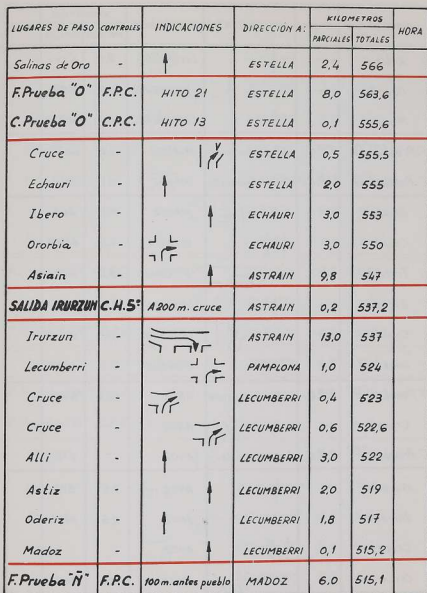 LUGARES DE PASO CONTROLES INDICACIONES DIRECCIÓN A: KILOMETROS HORA
PARCIALES TOTALES
Salinas de Oro - ESTELLA 2,4 566
F.Prueba "O" F.P.C. HITO 21 ESTELLA 8,0 563,6
C.Prueba "O" C.P.C. HITO 13 ESTELLA 0,1 555,6
Cruce - V ESTELLA 0,5 555,5
Echauri - ESTELLA 2,0 555
Ibero - ECHAURI 3,0 553
Ororbia - ECHAURI 3,0 550
Asiain - ASTRAIN 9,8 547
SALIDA IRURZUN C.H.5ª A 200 m. cruce ASTRAIN 0,2 537,2
Irurzun - ASTRAIN 13,0 537
Lecumberri - PAMPLONA 1,0 524
Cruce - LECUMBERRI 0,4 523
Cruce - LECUMBERRI 0,6 522,6
Alli - LECUMBERRI 3,0 522
Astiz - LECUMBERRI 2,0 519
Oderiz - LECUMBERRI 1,8 517
Madoz - LECUMBERRI 0,1 515,2
F.Prueba "Ñ" F.P.C. 100 m. antes pueblo MADOZ 6,0 515,1